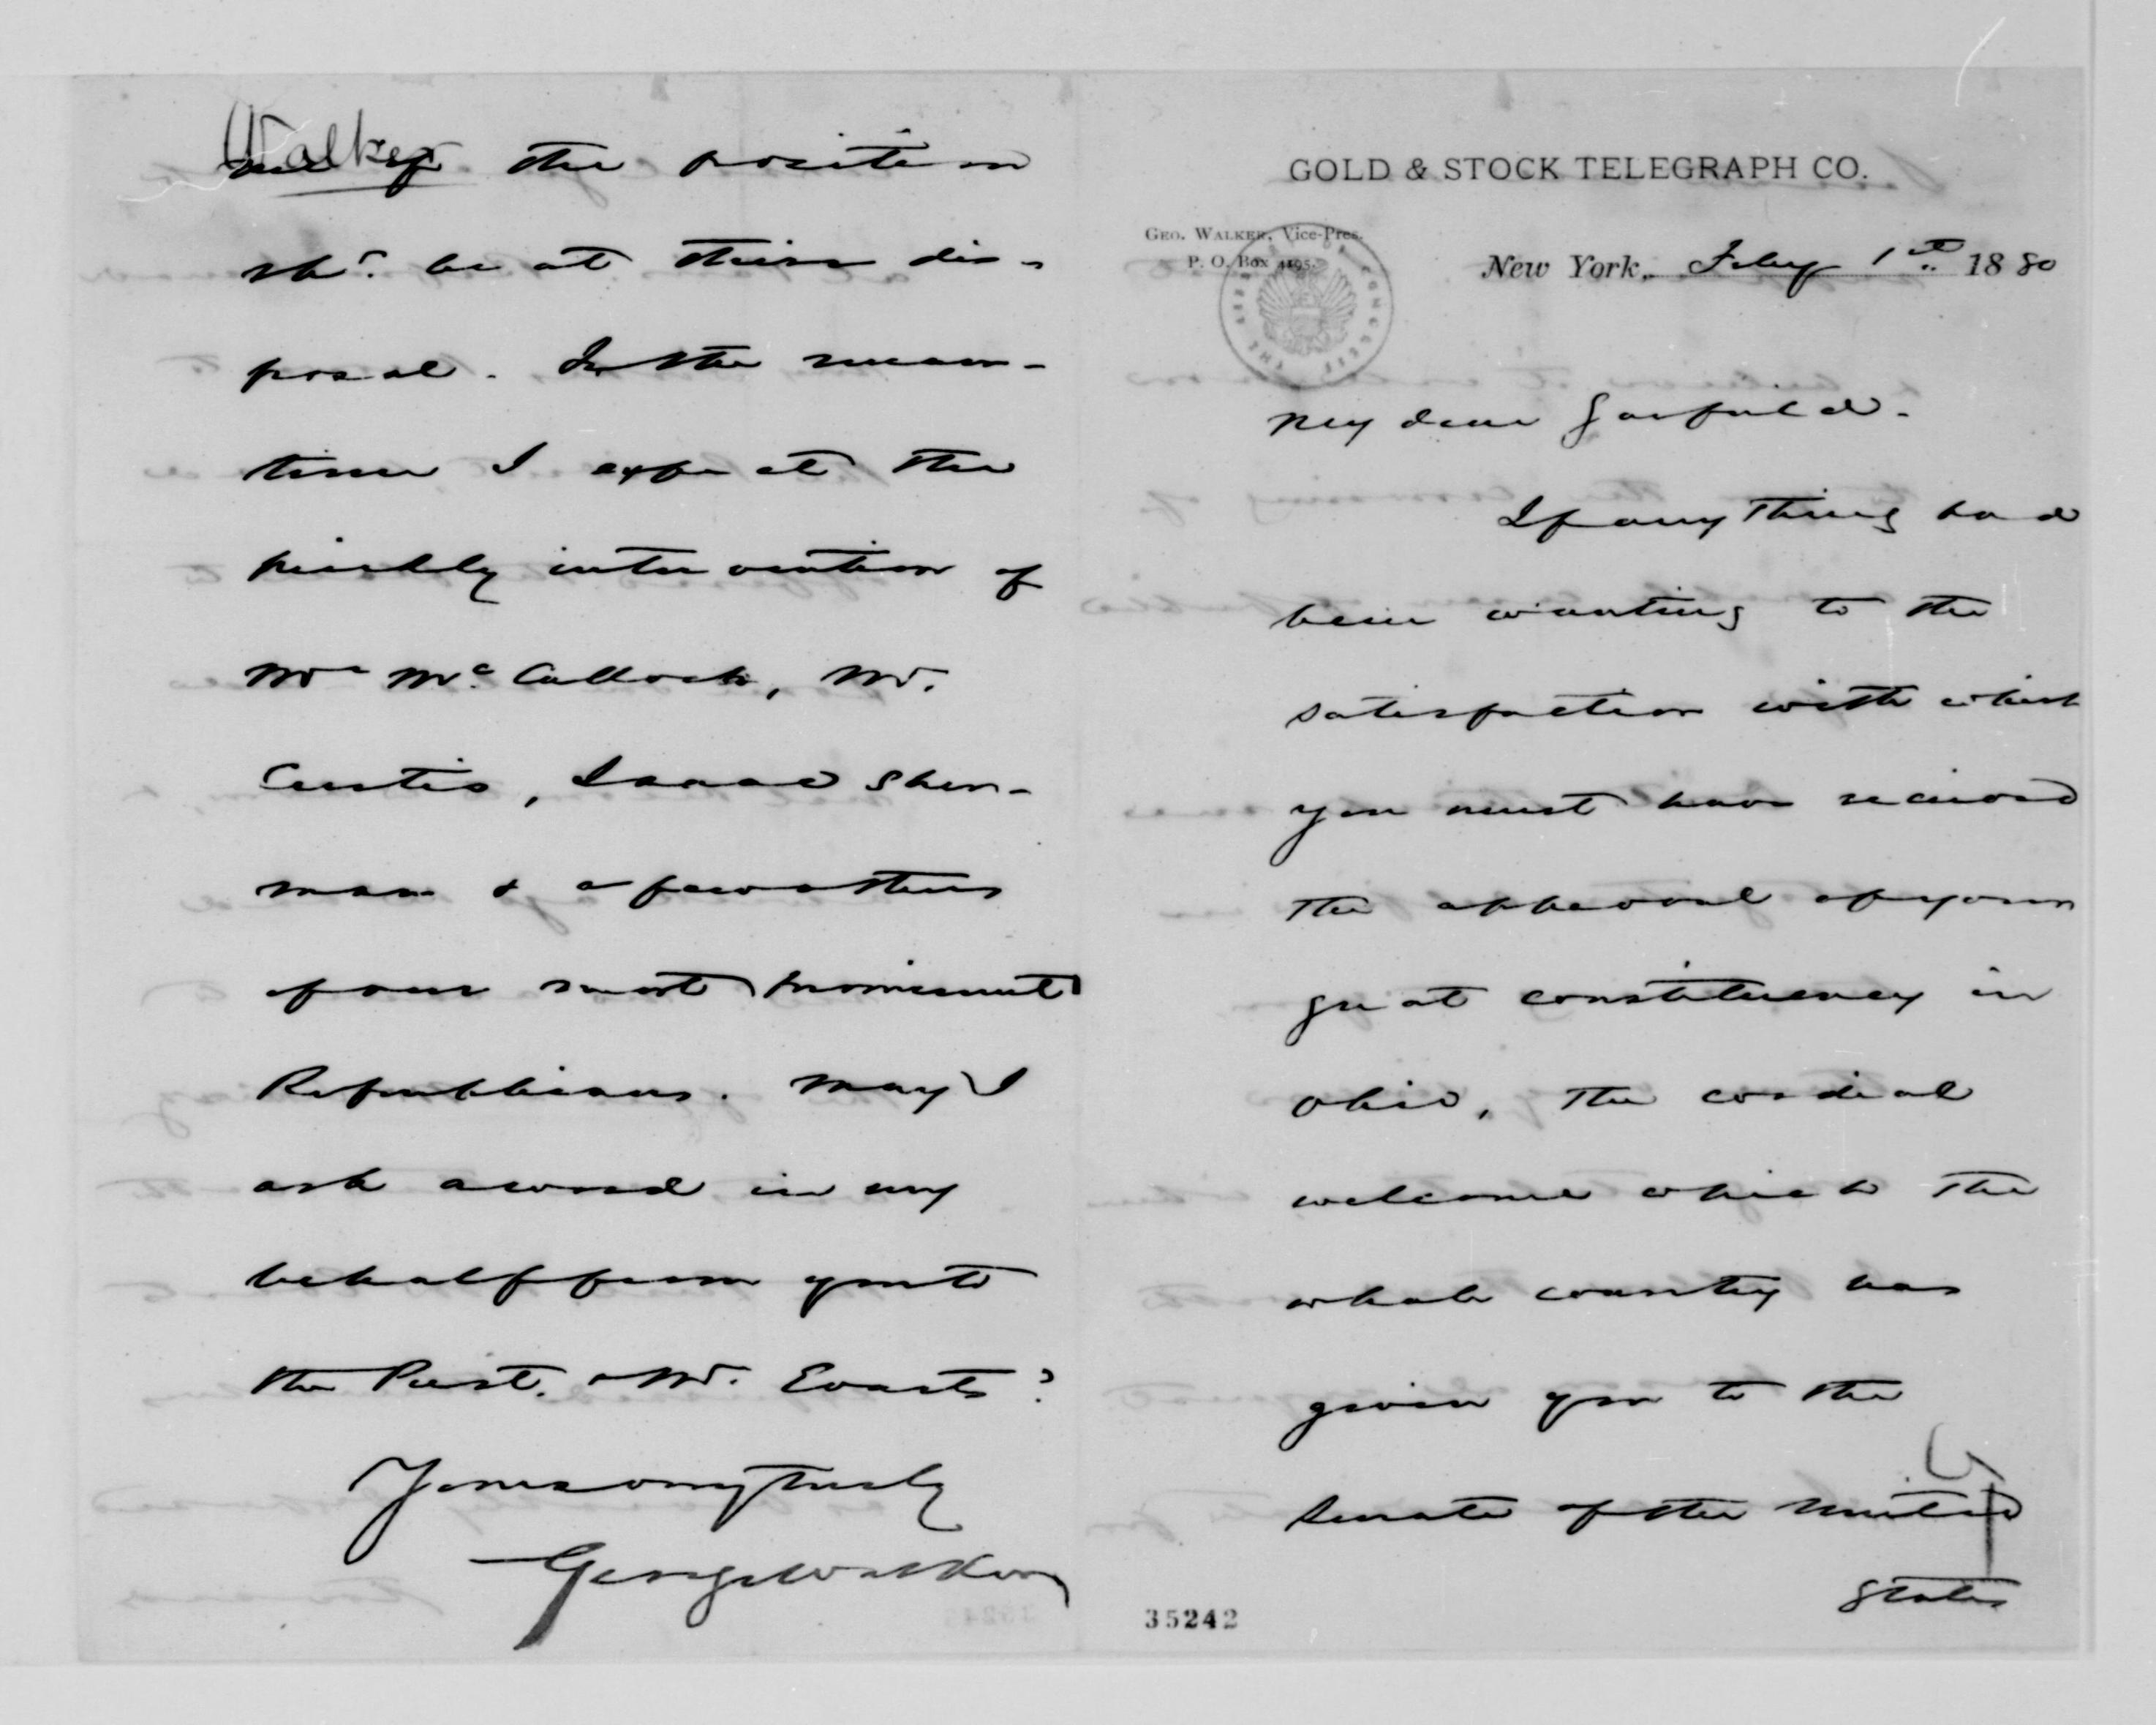 Walker
me if the position
shd. be at their dis-
posal. In the mean-
time I expect the
friendly intervention of
Mr McCulloch, Mr.
Curtis, Isaac Sher-
man & a few others
of our most prominent
Republicans. May I
ask a word in my
behalf from you to
the Prest. & Mr. Evarts?
Yours very truly
George Walker
GOLD & STOCK TELEGRAPH CO.
GEO. WALKER, Vice-Pres.
P. O. Box
New York, Feby 1st 1880
THE LIBRARY OF CONGRESS
My dear Garfield.
If anything had
been wanting to the
satisfaction with which
you must have received
the approval of your
great constituency in
Ohio, the cordial
welcome which the
whole country has
given you to the
Senate of the United
States
35242